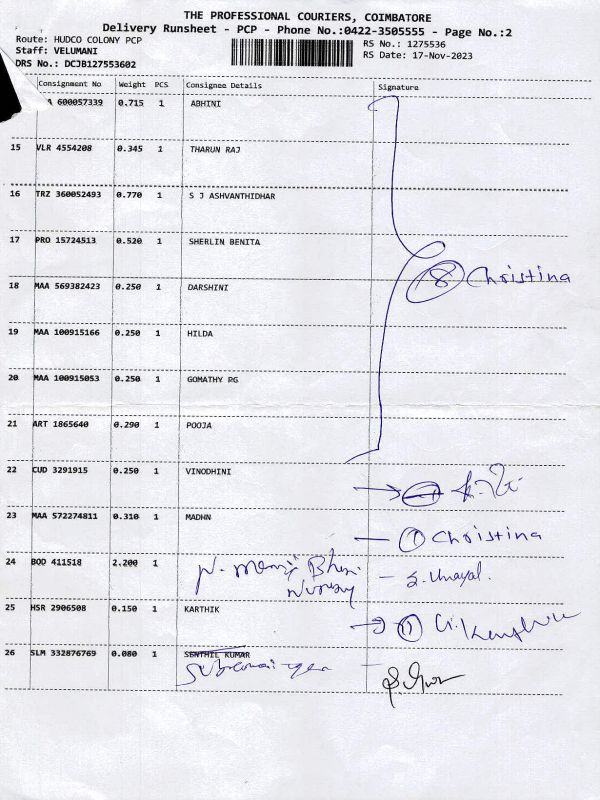 THE PROFESSIONAL COURIERS, COIMBATORE
Delivery Runsheet - PCP - Phone No.:0422-3505555 - Page No.:2
Route: HUDCO COLONY PCP
RS No.: 1275536
Staff: VELUMANI
RS Date: 17-Nov-2023
DRS No.: DCJB127553602
Consignment No Weight PCS Consignee Details Signature
A 600057339 0.715 1 ABHINI
15 VLR 4554208 0.345 1 THARUN RAJ
16 TRZ 360052493 0.770 1 S J ASHVANTHIDHAR
17 PRO 15724513 0.520 1 SHERLIN BENITA
8 Christina
18 MAA 569382423 0.250 1 DARSHINI
19 MAA 100915166 0.250 1 HILDA
20 MAA 100915053 0.250 1 GOMATHY PG
21 ART 1865640 0.290 1 POOJA
22 CUD 3291915 0.250 1 VINODHINI
23 MAA 572274811 0.310 1 MADHN 1 Christina
24 BOD 411518 2.200 1
25 HSR 2906508 0.150 1 KARTHIK 1
26 SLM 332876769 0.080 1 SENTHIL KUMAR